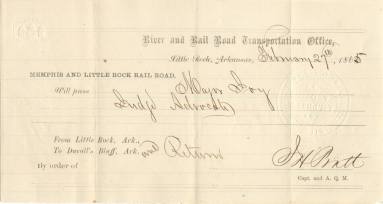 River and Rail Road Transportation Office,
Little Rock, Arkansas, February 27th, 1865
MEMPHIS AND LITTLE ROCK RAIL ROAD,
Will pass Major Foy
Judge Advocate
From Little Rock, Ark.,
To Duvall's Bluff, Ark. and Return
By order of
J H Pratt
Capt. and A. Q. M.